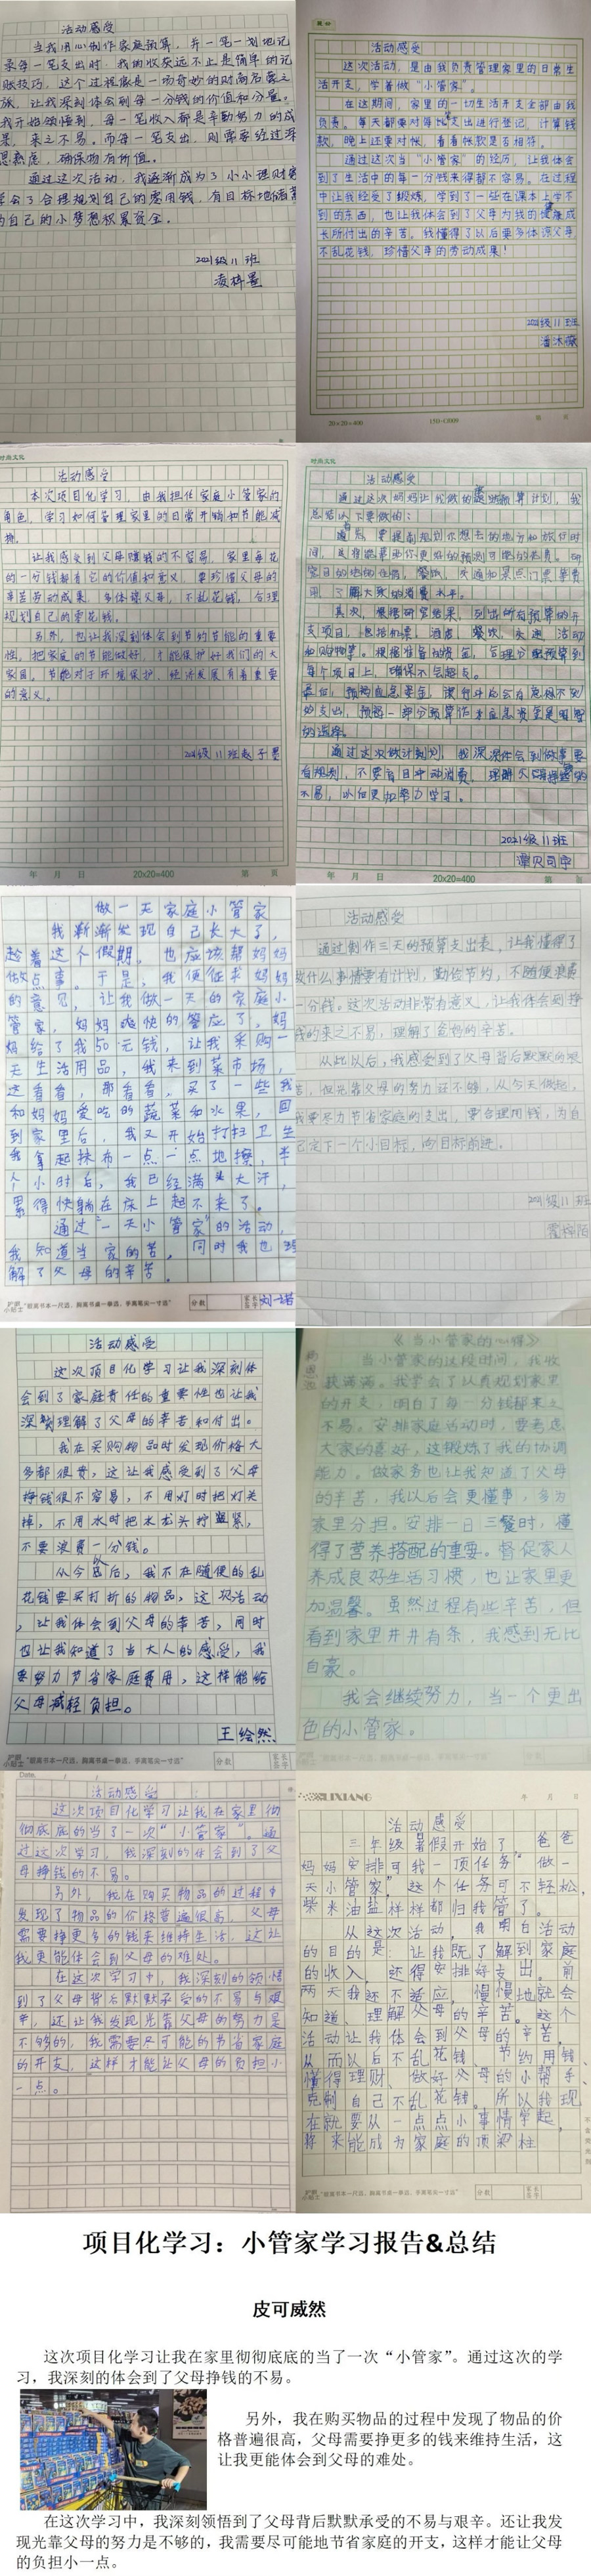 活动感受
当我用心制作家庭预算，并一笔一划地记
录每一笔支出时，我的收获远不止是简单的记
账技巧，这个过程像是一场奇妙的财商启蒙之
旅，让我深刻体会到每一分钱的价值和分量。
我开始领悟到，每一笔收入都是辛勤努力的成
果，来之不易。而每一笔支出，则需要经过深
思熟虑，确保物有所值。
通过这次活动，我逐渐成为了小小理财家
学会了合理规划自己的零用钱，有目标地储蓄
为自己的小梦想积累资金。
2021级11班
凌梓墨
活动感受
这次活动，是由我负责管理家里的日常生
活开支，学着做“小管家”。
在这期间，家里的一切生活开支全部由我
负责。每天都要对每比支出进行登记，计算钱
款，晚上还要对帐，看看帐款是否相符。
通过这次当“小管家”的经历，让我体会
到了生活中的每一分钱来得都不容易。在过程
中让我经受了锻炼，学到了一些在课本上学不
到的东西，也让我体会到了父母为我的健康成
长所付出的辛苦，我懂得了以后要多体谅父母
不乱花钱，珍惜父母的劳动成果！
2021级11班
潘沐薇
20×20=400
时尚文化
活动感受
本次项目化学习，由我担任家庭小管家的
角色，学习如何管理家里的日常开销和节能减
排。
让我感受到父母赚钱的不容易，家里每花
的一分钱都有它的价值和意义，要珍惜父母的
辛苦劳动成果，多体谅父母，不乱花钱，合理
规划自己的零花钱。
另外，也让我深刻体会到节约节能的重要
性，把家庭的节能做好，才能保护好我们的大
家园。节能对于环境保护，经济发展有着重要
的意义。
2021级11班赵子墨
年 月 日 20×20=400 第 页
时尚文化
活动感受
通过这次妈妈让我做的旅游预算计划，我
总结以下要做的：
首先，要提前规划你想去的地方和旅行时
间，这将能帮助你更好的预测可能的花费。研
究目的地的住宿，餐饮，交通和景点门票等费
用，了解大致的消费水平。
其次，根据研究结果，列出所有预算的开
支项目，包括机票，酒店，餐饮，交通，活动
和购物等。根据准备的资金，合理分配预算到
每个项目上，确保不会超支。
最后，预留应急资金，旅行中总会有意想不到
的支出，预留一部分预算作为应急资金是明智
的选择。
通过这次做计划，我深深体会到做事要
有规划，不要盲目冲动消费，理解父母挣钱的
不易，以后更加努力学习。
2021级11班
谭贝司宇
年 月 日 20×20=400 第 页
做一天家庭小管家
我渐渐发现自己长大了，
趁着这个假期，也应该帮妈妈
做点事。于是，我便征求妈妈
的意见，让我做一天的家庭小
管家，妈妈爽快的答应了，妈
妈给了我50元钱，让我采购一
天生活用品，我来到菜市场，
这看看，那看看，买了一些我
和妈妈爱吃的蔬菜和水果，回
到家里后，我又开始打扫卫生
我拿起抹布一点一点地擦，半
个小时后，我已经满头大汗，
累得快躺在床上起不来了。
通过“一天小管家”的活动，
我知道当家的苦。同时我也理
解了父母的辛苦。
护眼小贴士 “眼离书本一尺远，胸离书桌一拳远，手离笔尖一寸远” 分数 家长签字 刘一诺
活动感受
通过制作三天的预算支出表，让我懂得了
做什么事情要有计划，勤俭节约，不随便浪费
一分钱。这次活动非常有意义，让我体会到挣
钱的来之不易，理解了爸妈的辛苦。
从此以后，我感受到了父母背后默默的艰
苦，但光靠父母的努力还不够，从今天做起，
我要尽力节省家庭的支出，要合理用钱，为自
己定下一个小目标，向目标前进。
2021级11班
活动感受
这次项目化学习让我深刻体
会到了家庭责任的重要性也让我
深刻理解了父母的辛苦和付出。
我在买购物品时发现价格大
多都很贵，这让我感受到了父母
挣钱很不容易，不用灯时把灯关
掉，不用水时把水龙头拧紧，
不要浪费一分钱。
从今以后，我不在随便的乱
花钱要买打折的物品，这次活动
，让我体会到父母的辛苦，同时
也让我知道了当大人的感受，我
要努力节省家庭费用，这样能给
父母减轻负担。
王绘然
护眼小贴士 “眼离书本一尺远，胸离书桌一拳远，手离笔尖一寸远” 分数 家长签字
《当小管家的心得》
当小管家的这段时间，我收
获满满。我学会了认真规划家里
的开支，明白了每一分钱都来之
不易。安排家庭活动时，要考虑
大家的喜好，这锻炼了我的协调
能力。做家务也让我知道了父母
的辛苦，我以后会更懂事，多为
家里分担。安排一日三餐时，懂
得了营养搭配的重要。督促家人
养成良好生活习惯，也让家里更
加温馨。虽然过程有些辛苦，但
看到家里井井有条，我感到无比
自豪。
我会继续努力，当一个更出
色的小管家。
Date.
活动感受
这次项目化学习让我在家里彻
彻底底的当了一次“小管家”。通
过这次学习，我深刻的体会到了父
母挣钱的不易。
另外，我在购买物品的过程中
发现了物品的价格普遍很高，父母
需要挣更多的钱来维持生活，这让
我更能体会到父母的难处。
在这次学习中，我深刻的领悟
到了父母背后默默承受的不易与艰
辛，还让我发现光靠父母的努力是
不够的，我需要尽可能的节省家庭
的开支，这样才能让父母的负担小
一点。
LIXIANG 年 月 日
活动感受
三年级暑假开始了，爸爸
妈妈安排可我一项任务“做一
天小管家”，这个任务可不轻松，
柴米油盐样样都归我管了。
从这次活动，我明白活动
的目的是：让我既了解到家庭
的收入，还得安排好支出。前
两天我还不适应，慢慢地就会
知道、理解父母的辛苦。这个
活动让我体会到父母的辛苦。
从而以后不乱花钱、节约用钱、
懂得理财、做好父母的小帮手、
克制自己不乱花钱。所以我现
在就要从一点点小事情学起，
将来能成为家庭的顶梁柱
护眼小贴士 “眼离书本一尺远，胸离书桌一拳远，手离笔尖一寸远” 分数 家长签字
项目化学习：小管家学习报告&总结
皮可威然
这次项目化学习让我在家里彻彻底底的当了一次“小管家”。通过这次的学
习，我深刻的体会到了父母挣钱的不易。
另外，我在购买物品的过程中发现了物品的价
格普遍很高，父母需要挣更多的钱来维持生活，这
让我更能体会到父母的难处。
在这次学习中，我深刻领悟到了父母背后默默承受的不易与艰辛。还让我发
现光靠父母的努力是不够的，我需要尽可能地节省家庭的开支，这样才能让父母
的负担小一点。